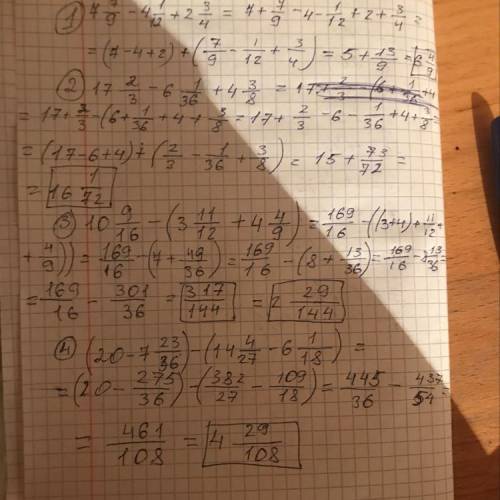 1) 7 7/9 - 4 1/12 + 2 3/4 = 7 + 7/9 - 4 - 1/12 + 2 + 3/4 =
= (7 - 4 + 2) + (7/9 - 1/12 + 3/4) = 5 + 13/9 = 6 4/9
2) 17 2/3 - 6 1/36 + 4 3/8 =
= 17 + 2/3 - (6 + 1/36 + 4 + 3/8 = 17 + 2/3 - 6 - 1/36 + 4 + 3/8 =
= (17 - 6 + 4) + (2/3 - 1/36 + 3/8) = 15 + 73/72 =
= 16 1/72
3) 10 9/16 - (3 11/12 + 4 4/9) = 169/16 - ((3+4) + 11/12 +
+ 4/9)) = 169/16 - (7 + 49/36) = 169/16 - (8 + 13/36) = 169/16 - 8 13/36 =
= 169/16 - 301/36 = 317/144 = 2 29/144
4) (20 - 7 23/36) - (14 4/27 - 6 1/18) =
= (20 - 275/36) - (382/27 - 109/18) = 445/36 - 437/54 =
= 461/108 = 4 29/108